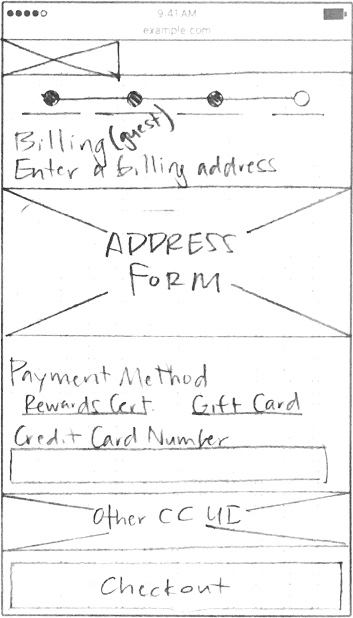 9:41 AM
example.com
Billing (guest)
Enter a billing address
ADDRESS
FORM
Payment Method
Rewards Cert. Gift Card
Credit Card Number
Other CC UI
Checkout